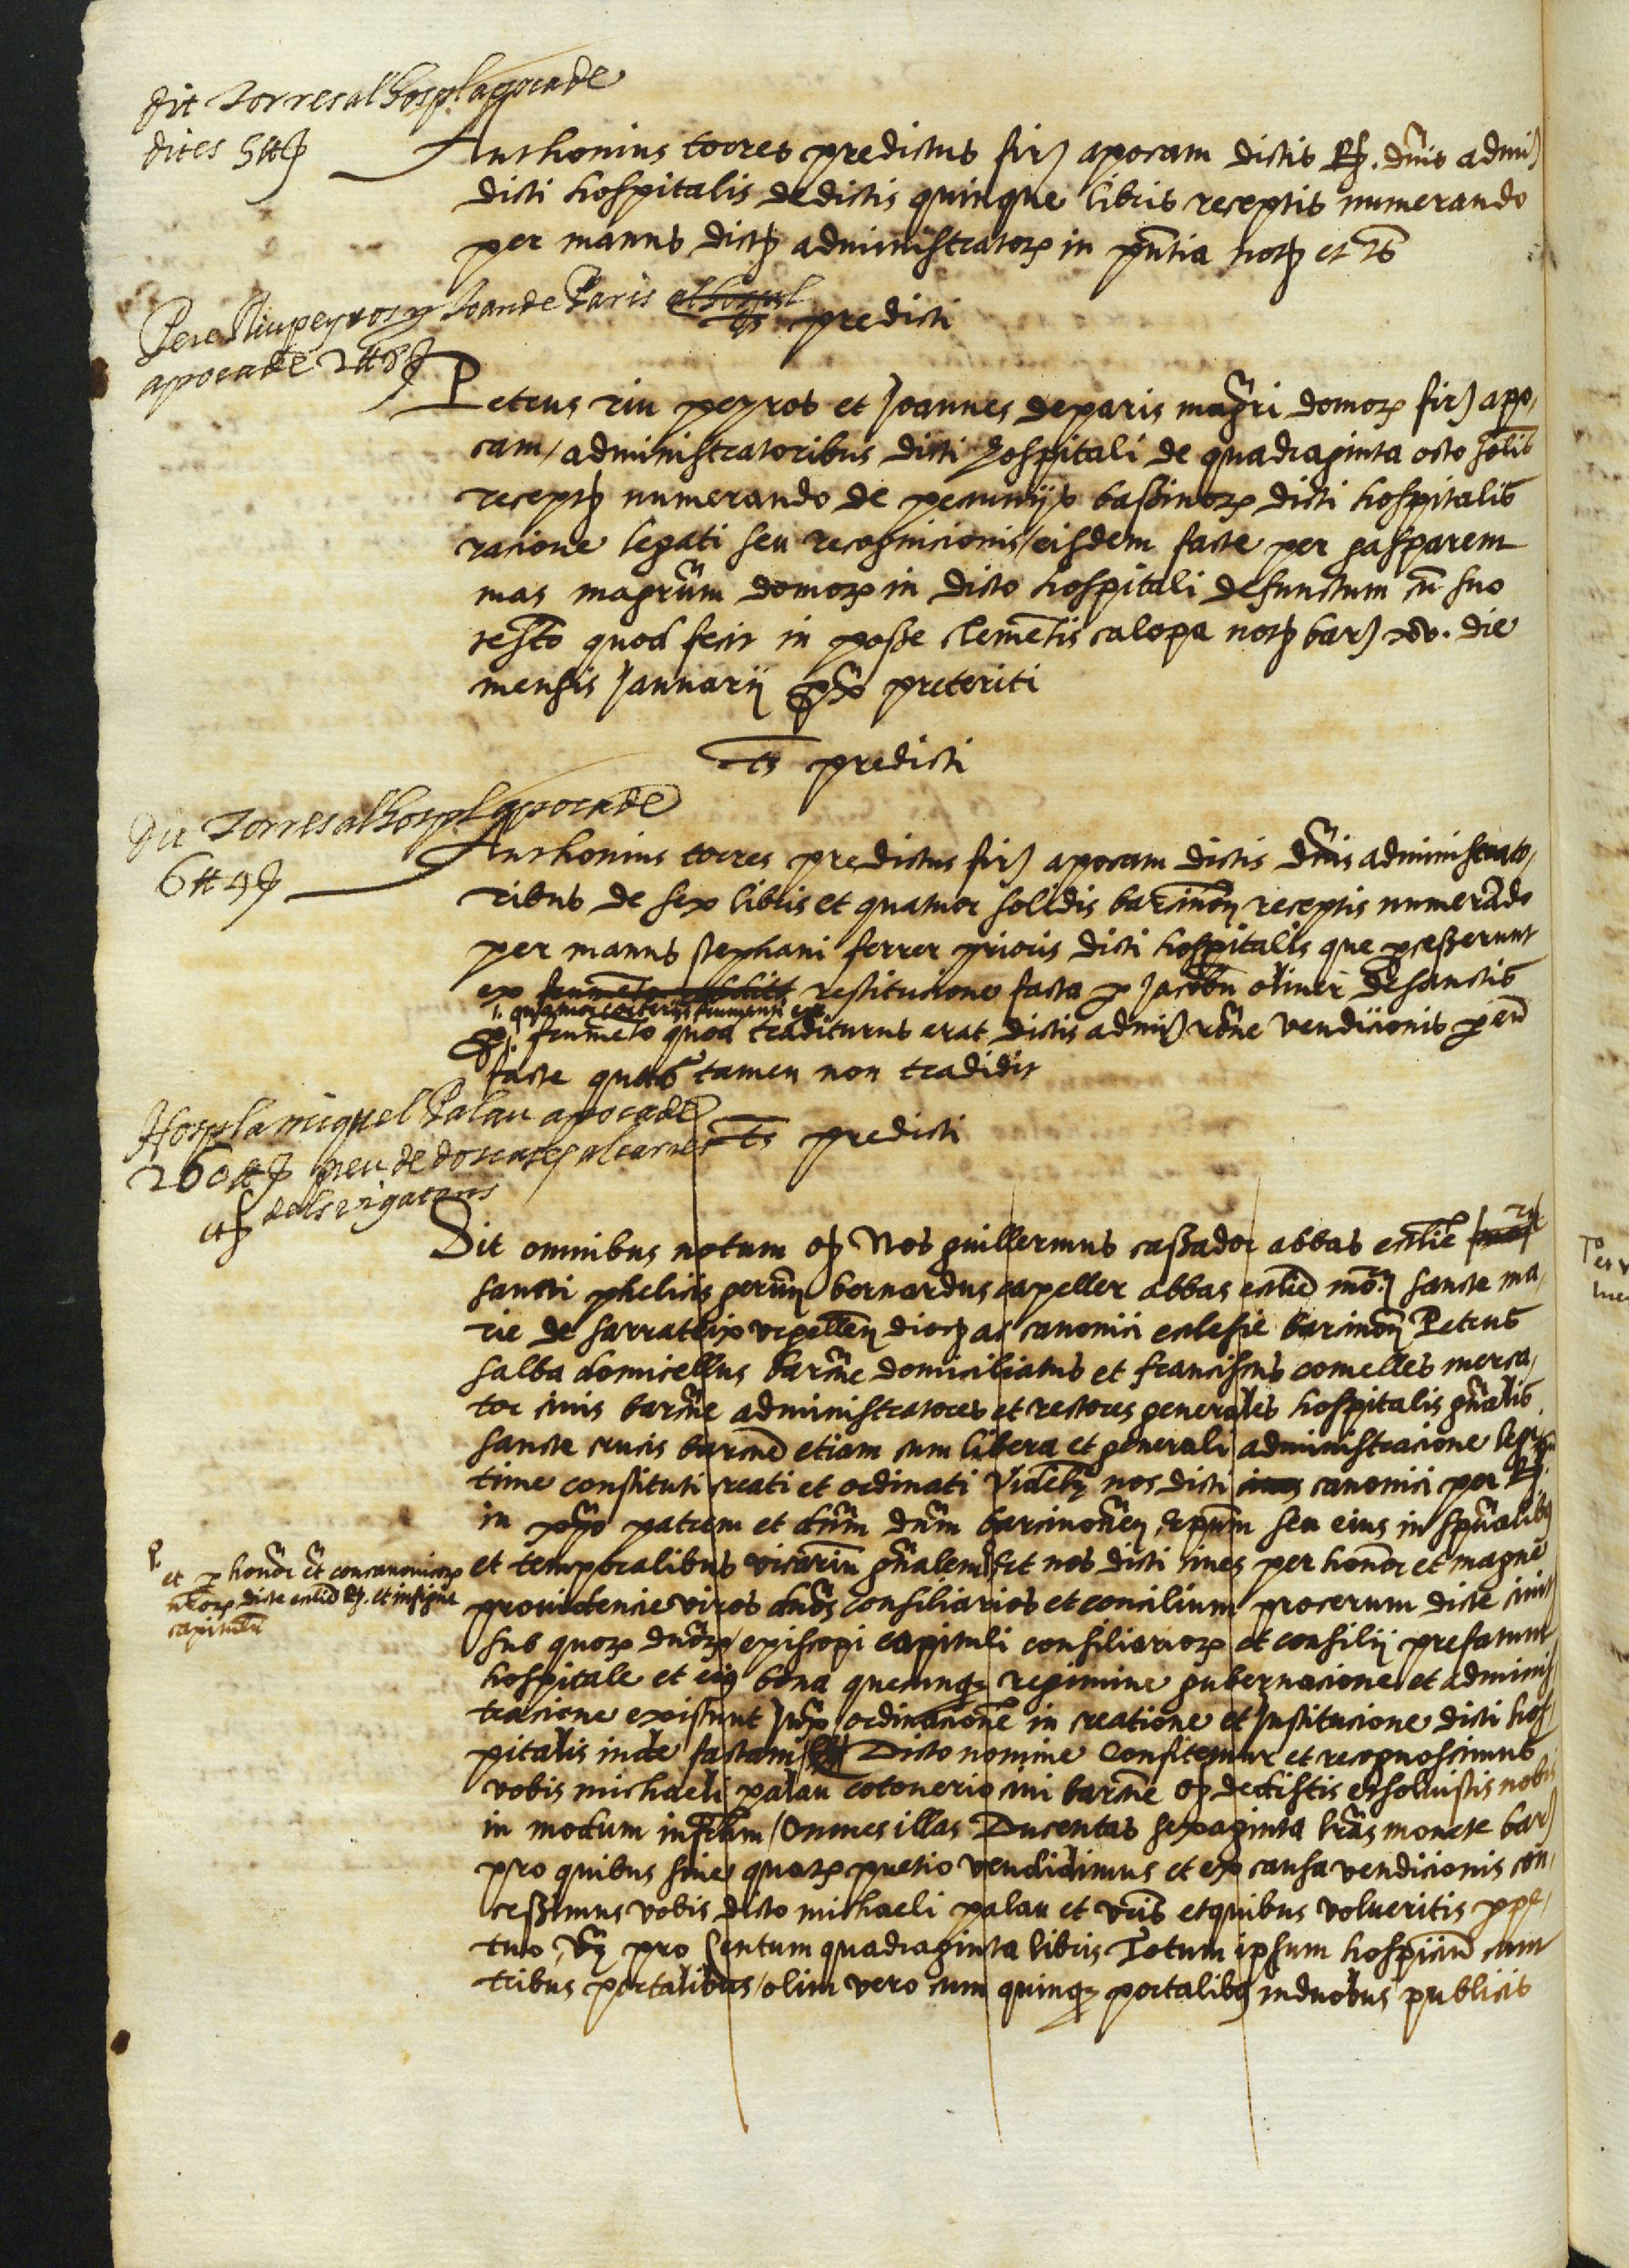 dit Torres al hospl apoca de
dites 5 ₶ ẜ
Anthonius torres predictus fir) apocam dictis Rꝭ. dn̄is admi)
dicti hospitalis de dictis quinque libris receptis numerando
per manus dictꝭ administratoꝝ in pn̄tia notꝭ et tꝭ
Pere Riupeyros y Joan de Paris al hospl
apoca de 2 ₶ 8 ẜ
tꝭ predicti
Petrus riu peyros et Joannes de paris magr̄i domoꝝ fir) apo,
cam, administratoribus dicti hospitali de quadraginta octo solis
receptꝭ numerando de pecuniijs bassinoꝝ dicti hospitalis
racione legati seu recognicionis eisdem facte per gasparem
mas magrūm domoꝝ in dicto hospitali defunctum cū suo
testō quod fecit in posse clemētis calopa notꝭ bar) xv. die
mensis Januarij pꝛox̄ preteriti
tꝭ predicti
dit Torres al hospl apoca de
6 ₶ 4 ẜ
Anthonius torres predictus fir) apocam dictis dn̄is administrato,
ribus de sex libris et quatuor solidis barcinoñ receptis numerādo
per manus stephani ferrer prioris dicti hospitalis que processerunt
ex restitucione facta ꝑ Jacobū oliuer de sanctis
frumēto quod traditurus erat dictis admi) rōne vendicionis ꝑ eū
facte quas tamen non tradidit
Hospl a miquel Palau apoca de
260 ₶ ẜ preu de dos cases al carrer
dels vigatans
tꝭ predicti
Sit omnibus notum qꝭ Nos guillermus cassador abbas ecclie
sancti phelicis gerūn bernardus capeller abbas ecclie mō. sancte ma,
rie de sarrateix vrgelleñ diocꝭ ac canonici eclesie barcinoñ Petrus
salba domicellus barcn̄e domiciliatus et franciscus comelles merca,
tor ciuis barcn̄e administratores et rectores generales hospitalis gn̄alis
sancte crucis barcn̄e etiam cum libera et generali administracione legi,
time constituti creati et ordinati Videlꝫ nos dicti canonici per Rꝭ.
in xpō patrem et dn̄m dn̄m barcinoneñ epūm seu eius in spūalibꝫ
et temporalibus vicariū gn̄alem Et nos dicti ciues per honor et magne
et ꝑ honor et concanonicos
nr̄os dicte ecclie Rꝭ. et insigne
capitulū
prouidencie viros dn̄os consiliarios et concilium procerum dicte ciuit
sub quoꝝ dn̄oꝝ episcopi capituli consiliarioꝝ et consilij prefatum
hospitale et eiꝰ bona quecumqꝫ regimine gubernacione et adminis
tracione existunt Juxͣ ordinationē in creatione et Justitucione dicti hos,
pitalis inde factam Dicto nomine Confitemur et recognoscimus
vobis michaeli palau cotonerio ciui barcn̄e qꝭ dedistis et soluistis nobis
in modum infrm̄ Omnes illas Ducentas sexaginta lrās monete bar)
pro quibus siue quoꝝ pretio vendidimus et ex causa vendicionis con,
cessimus vobis dicto michaeli palau et vr̄is et quibus volueritis ꝑpe,
tuo, vꝫ pro Centum quadraginta libris Totum ipsum hospiciū cum
tribus portalibus olim vero cum quinqꝫ portalibꝫ in duobus publicis